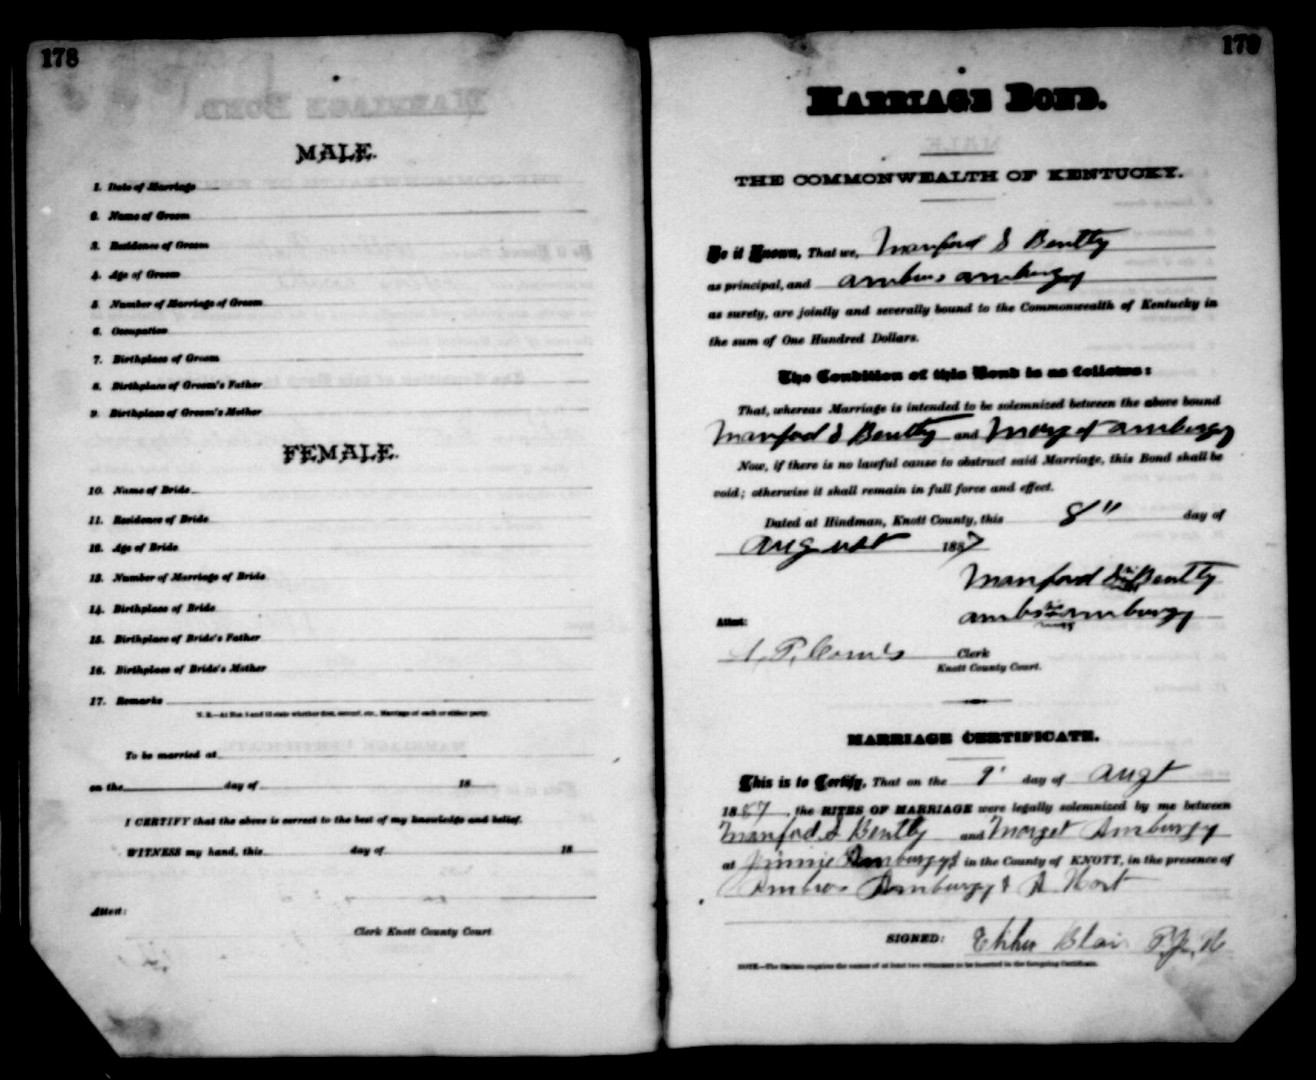 178
MALE.
1. Date of Marriage
2. Name of Groom
3. Residence of Groom
4. Age of Groom
5. Number of Marriage of Groom
6. Occupation
7. Birthplace of Groom
8. Birthplace of Groom's Father
9. Birthplace of Groom's Mother
FEMALE.
10. Name of Bride
11. Residence of Bride
12. Age of Bride
13. Number of Marriage of Bride
14. Birthplace of Bride
15. Birthplace of Bride's Father
16. Birthplace of Bride's Mother
17. Remarks
N. B.—At Nos. 5 and 13 state whether first, second, etc., Marriage of each or either party.
To be married at
on the day of 18
I CERTIFY that the above is correct to the best of my knowledge and belief.
WITNESS my hand, this day of 18
Attest:
Clerk Knott County Court
179
MARRIAGE BOND.
THE COMMONWEALTH OF KENTUCKY.
Be it Known, That we, Manford S Bentty
as principal, and ambus amburgy
as surety, are jointly and severally bound to the Commonwealth of Kentucky in
the sum of One Hundred Dollars.
The Condition of this Bond is as follows:
That, whereas Marriage is intended to be solemnized between the above bound
Manford S Bentty and amburgy
Now, if there is no lawful cause to obstruct said Marriage, this Bond shall be
void; otherwise it shall remain in full force and effect.
Dated at Hindman, Knott County, this 8" day of
august 1887
Manford Bentty
amburgy
Attest:
Clerk
Knott County Court.
MARRIAGE CERTIFICATE.
This is to Certify, That on the 9" day of Augt
1887, the RITES OF MARRIAGE were legally solemnized by me between
Manford S Bentty and Marget Amburgy
at Jinnie Amburgys in the County of KNOTT, in the presence of
Ambros Amburgy & A Hart
SIGNED: Elihu Blair
NOTE.—The Statute requires the names of at least two witnesses to be inserted in the foregoing Certificate.